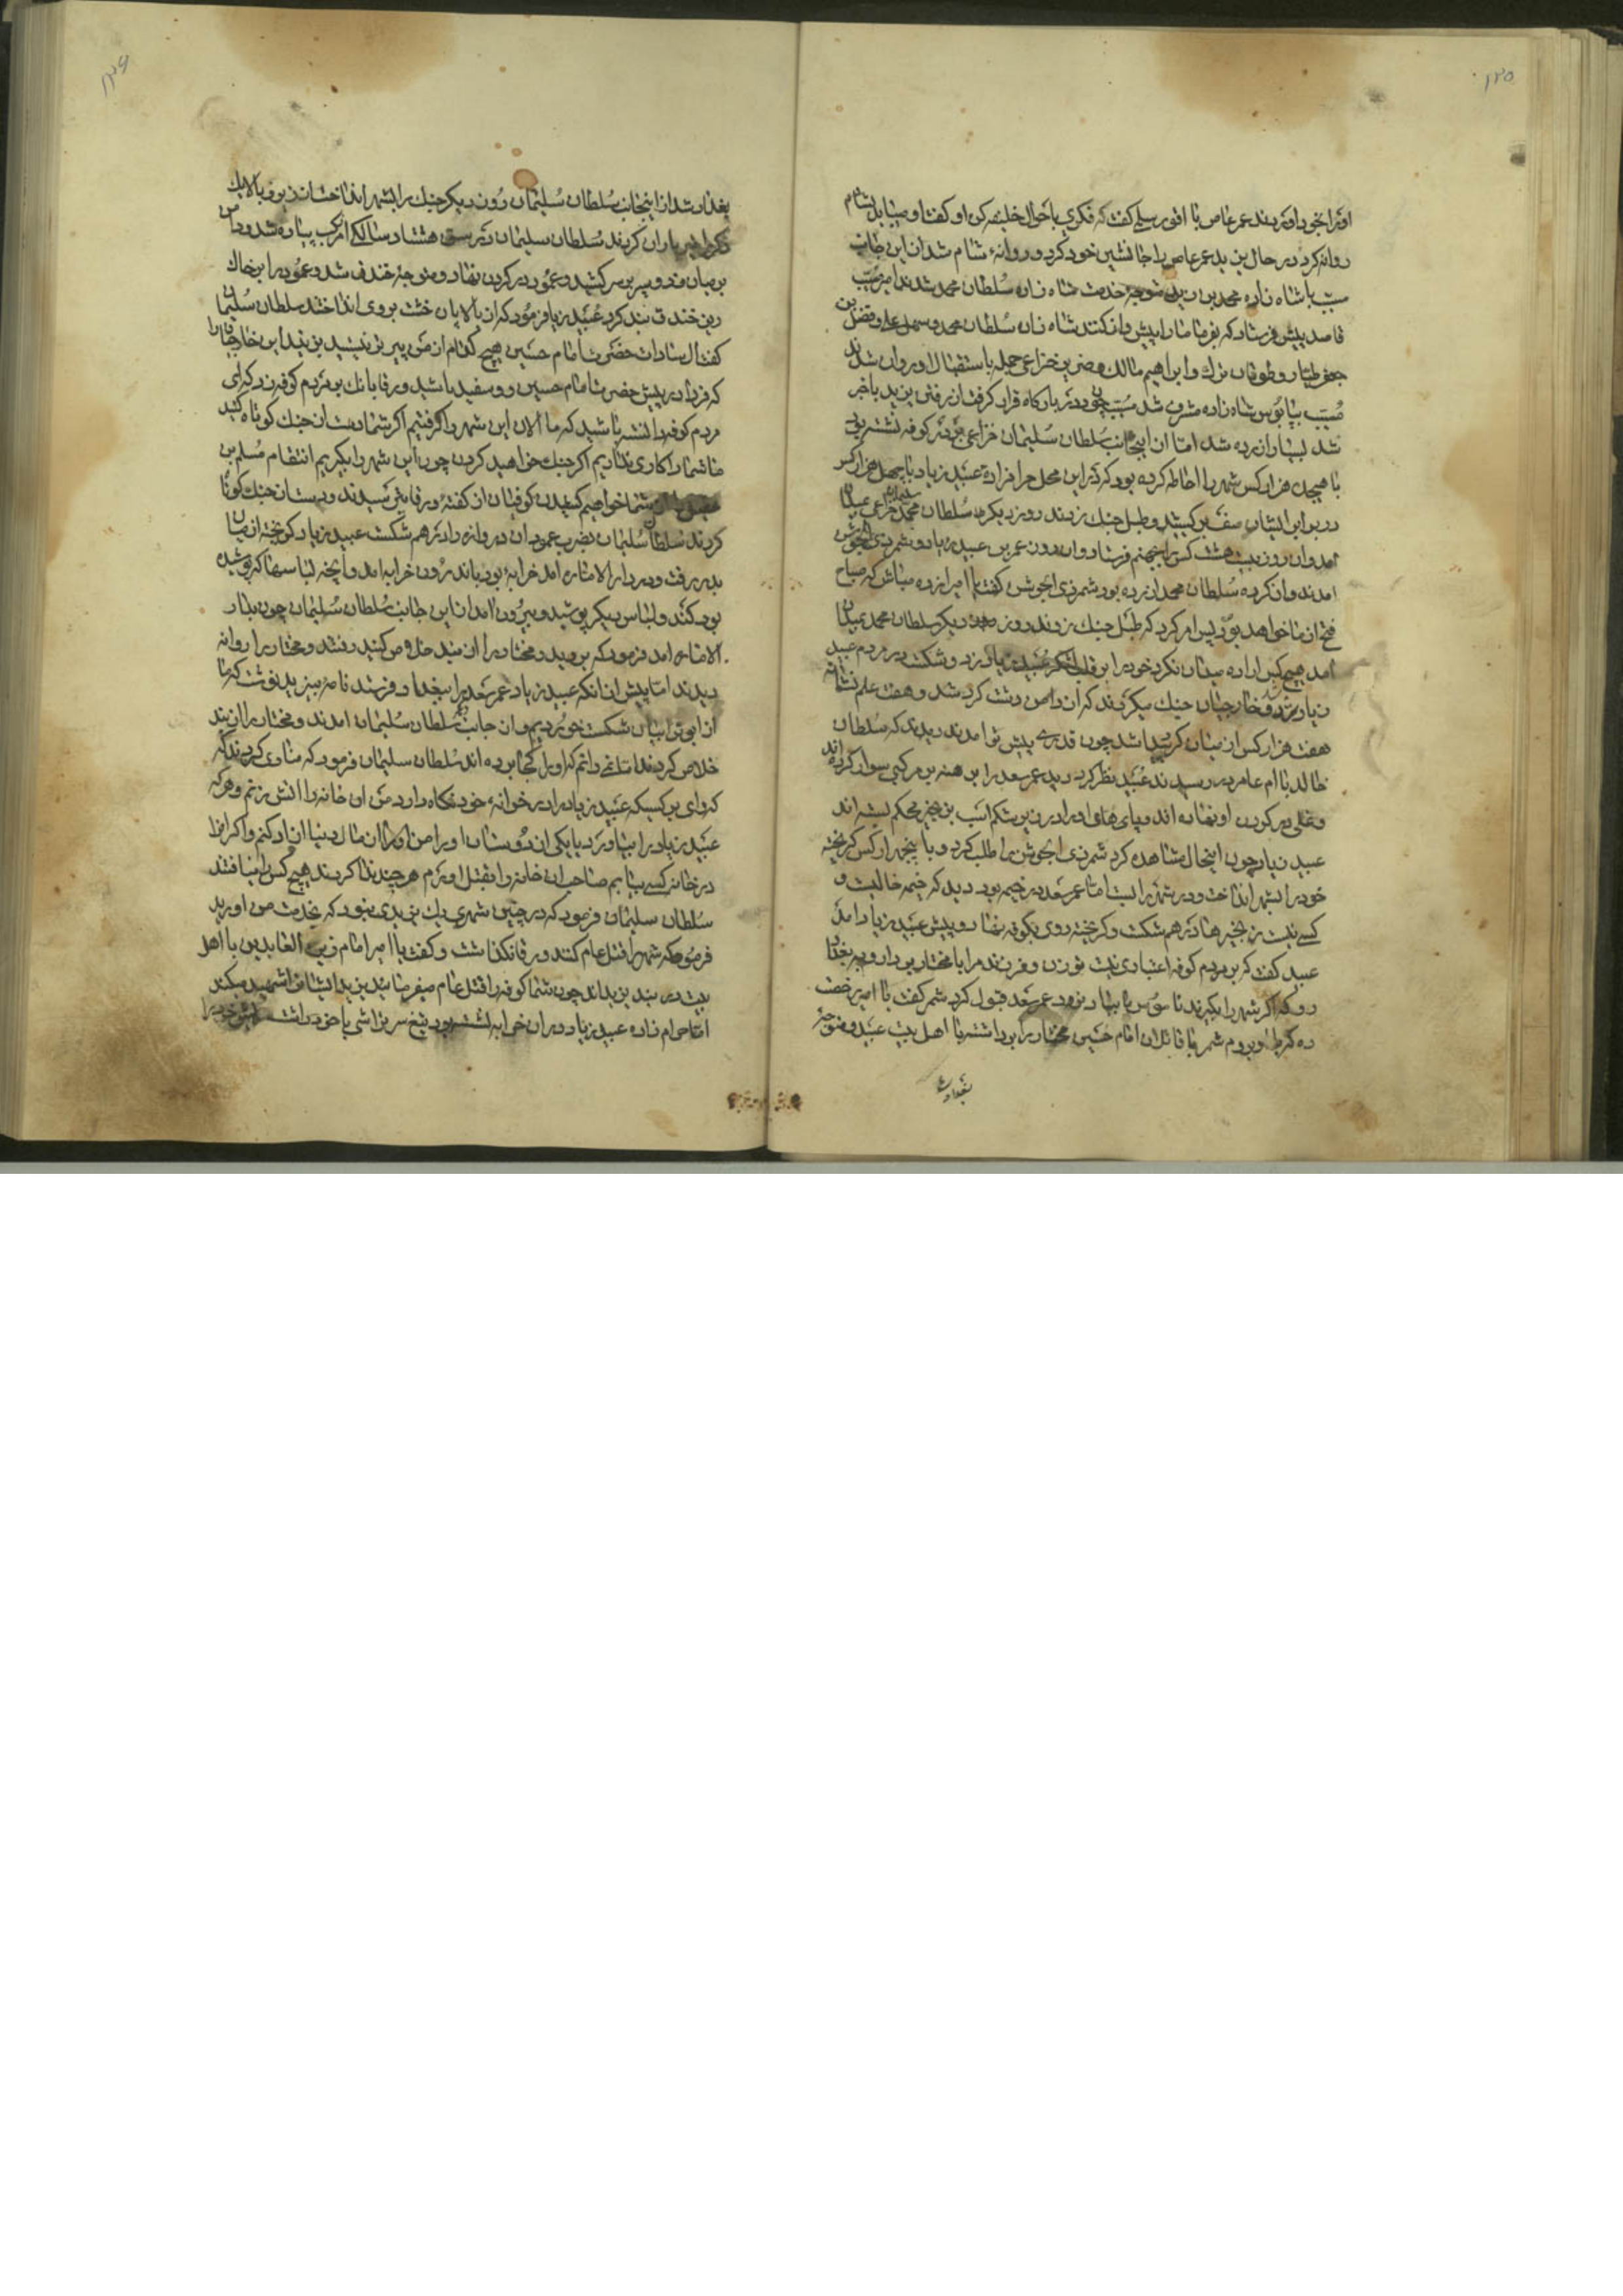 ۱۲۵
او را بخود آورند عمر عاص با اقوی رسلی گفت که فکری باحوال خلیفه کن او گفت او را باید بشام
روانه کرد در حال یزید عمر عاص را جانشین خود کرد و روانهٔ شام شد از این جانب
مسیب با شاه زاده محمد بن زید متوجه خدمت شاه زاده سلطان محمد شدند امیر مسیب
قاصد پیش فرستاد که بفرما ما را پیش واز کنند شاه زاده سلطان محمد و سهل علی و فضل بن
جعفر طیار و طوغان ترک و ابراهیم مالک و نضر بن خزاعی جمله باستقبال او روان شدند
مسیب بپابوس شاه زاده مشرف شد مسیب چون در بارگاه قرار گرفت از رفتن یزید باخبر
شد بسیار آزرده شد اما از اینجانب سلطان سلیمان خزاعی بر در کوفه نشسته بود
با هیجده هزار کس شهر را احاطه کرده بود که در این محل حرامزاده عبید زیاد با چهل هزار کس
در برابر ایشان صف بر کشید و طبل جنک زدند روز دیگر سلطان محمد خزاعی بمیدان
آمد و آن روز بیست هشت کس را بجهنم فرستاد و آن روز عمر بن عبید زیاد و شمر ذی الجوشن
آمدند و از کرده سلطان محمد آزرده بود شمر ذی الجوشن گفت یا امیر آزرده مباش که صباح
فتح از ما خواهد بود پس امر کرد که طبل جنک زدند روز دیگر سلطان محمد بمیدان
آمد هیچ کس اراده میدان نکرد خود را بر قلب لشکر عبید زیاد زد و شکست در مردم عبید
زیاد برزد و خارجیان جنک میکردند که از دامن دشت گرد شد و هفت علم نشانه
هفت هزار کس از میان گرد پیدا شد چون قدری پیش تر آمدند دیدند که سلطان
خالد با ام عامر در رسیدند عبید نظر کرد دید عمر سعد را برهنه بر مرکبی سوار کرده اند
و غلی در گردن او نهاده اند و پای های او را در زیر شکم اسب بزنجیر محکم بسته اند
عبید زیاد چون اینحال مشاهده کرد شمر ذی الجوشن را طلب کرد و با پنجهزار کس گریخته
خود را بشهر انداخت و در شهر را بست اما عمر سعد در خیمه بود دید که خیمه خالیست و
کسی نیست زنجیرها در هم شکست و گریخته روی بکوفه نهاد و پیش عبید زیاد آمد
عبید گفت که بر مردم کوفه اعتباری نیست تو زن و فرزند مرا با مختار بردار و به بغداد
رو که اگر شهر را بگیرند ناموس ما بباد نرود عمر سعد قبول کرد شمر گفت یا امیر رخصت
ده که من او بروم شمر با قاتلان امام حسین مختار را برداشته با اهل بیت عبید و متوجهٔ
بغداد
۱۲۶
بغداد شد از اینجانب سلطان سلیمان روز دیگر جنک را بشهر انداخت از برف بالا یک
تیر باران کردند سلطان سلیمان در سن هشتاد سالگی از مرکب پیاده شد و دامن
بر میان زد و سپر بر سر کشید و عمود در گردن نهاد و متوجهٔ خندق شد و عمود را بر خاک
ریز خندق بند کرد عبید زیاد فرمود که از بالا پاره خشت بروی انداختند سلطان سلیمان
گفت ال سادات حضرت امام حسین هیچ کدام از من پیر تر نیستید بزنید این خارجیان را
که فردا در پیش حضرت امام حسین رو سفید باشید و رقا بانک بر مردم کوفه زد که ای
مردم کوفه دانسته باشید که ما الان این شهر را گرفتیم اگر شما دست از جنک کوتاه کنید
ما شما را کاری نداریم اگر جنک خواهید کردن چون این شهر را بگیریم انتقام مسلم بن
عقیل را از شما خواهیم کشیدن کوفیان از گفتهٔ ورقا بترسیدند و دست از جنک کوتاه
کردند سلطان سلیمان بضرب عمود آن دروازه را در هم شکست عبید زیاد گریخته از میان
بدر رفت و در دار الاماره آمد خرابهٔ بود باندرون خرابه آمد و آنچه لباسها که پوشیده
بود کند و لباس دیگر پوشید و بیرون آمد از این جانب سلطان سلیمان چون بدار
الاماره آمد فرمود که بروید و مختار را از بند خلاص کنید رفتند و مختار را روانه
دیدند اما پیش از آنکه عبید زیاد عمر سعد را ببغداد فرستد نامه بیزید نوشت که ما
از ابوترابیان شکست خوردیم و از جانب سلطان سلیمان آمدند و مختار را از بند
خلاص کردند اما نمی دانم که او را کجا برده اند سلطان سلیمان فرمود که منادی کردند که
که وای بر کسیکه عبید زیاد را در خوانهٔ خود نگاه دارد من آن خانه را آتش بزنم و هر که
عبید زیاد را بیاورد یا یکی از دوستان او را من او را از مال دنیا آزاد کنم و اگر او را
در خانه کسی بیابم صاحب آن خانه را بقتل آورم هر چند ندا کردند هیچ کس را نیافتند
سلطان سلیمان فرمود که در چنین شهری یک یزیدی نبود که بخدمت من آورید
فرمود که شهر را قتل عام کنند ورقا نگذاشت و گفت یا امیر امام زین العابدین با اهل
بیت در بند یزیداند چون شما کوفه را قتل عام میفرمائید یزید ایشان را شهید میکند
اما حرام زاده عبید زیاد در آن خرابه نشسته بود تیغ سر تراشی با خود داشت ریش خود را